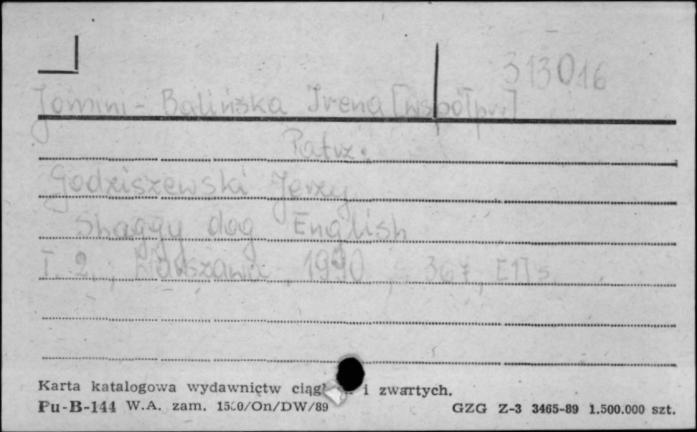 313016
Jomini-Balińska Irena [współpr.]
Patrz:
Godziszewski Jerzy
Shaggy dog English
T. 2., Warszawa, 1990, 367, [1] s.
Karta katalogowa wydawnictw i zwartych.
Pu-B-144 W.A. zam. /On/DW/89 GZG Z-3 3465-89 1.500.000 szt.